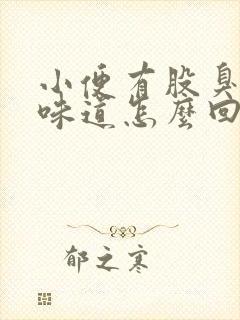 小便有股臭
味道怎麼回
郁之寒